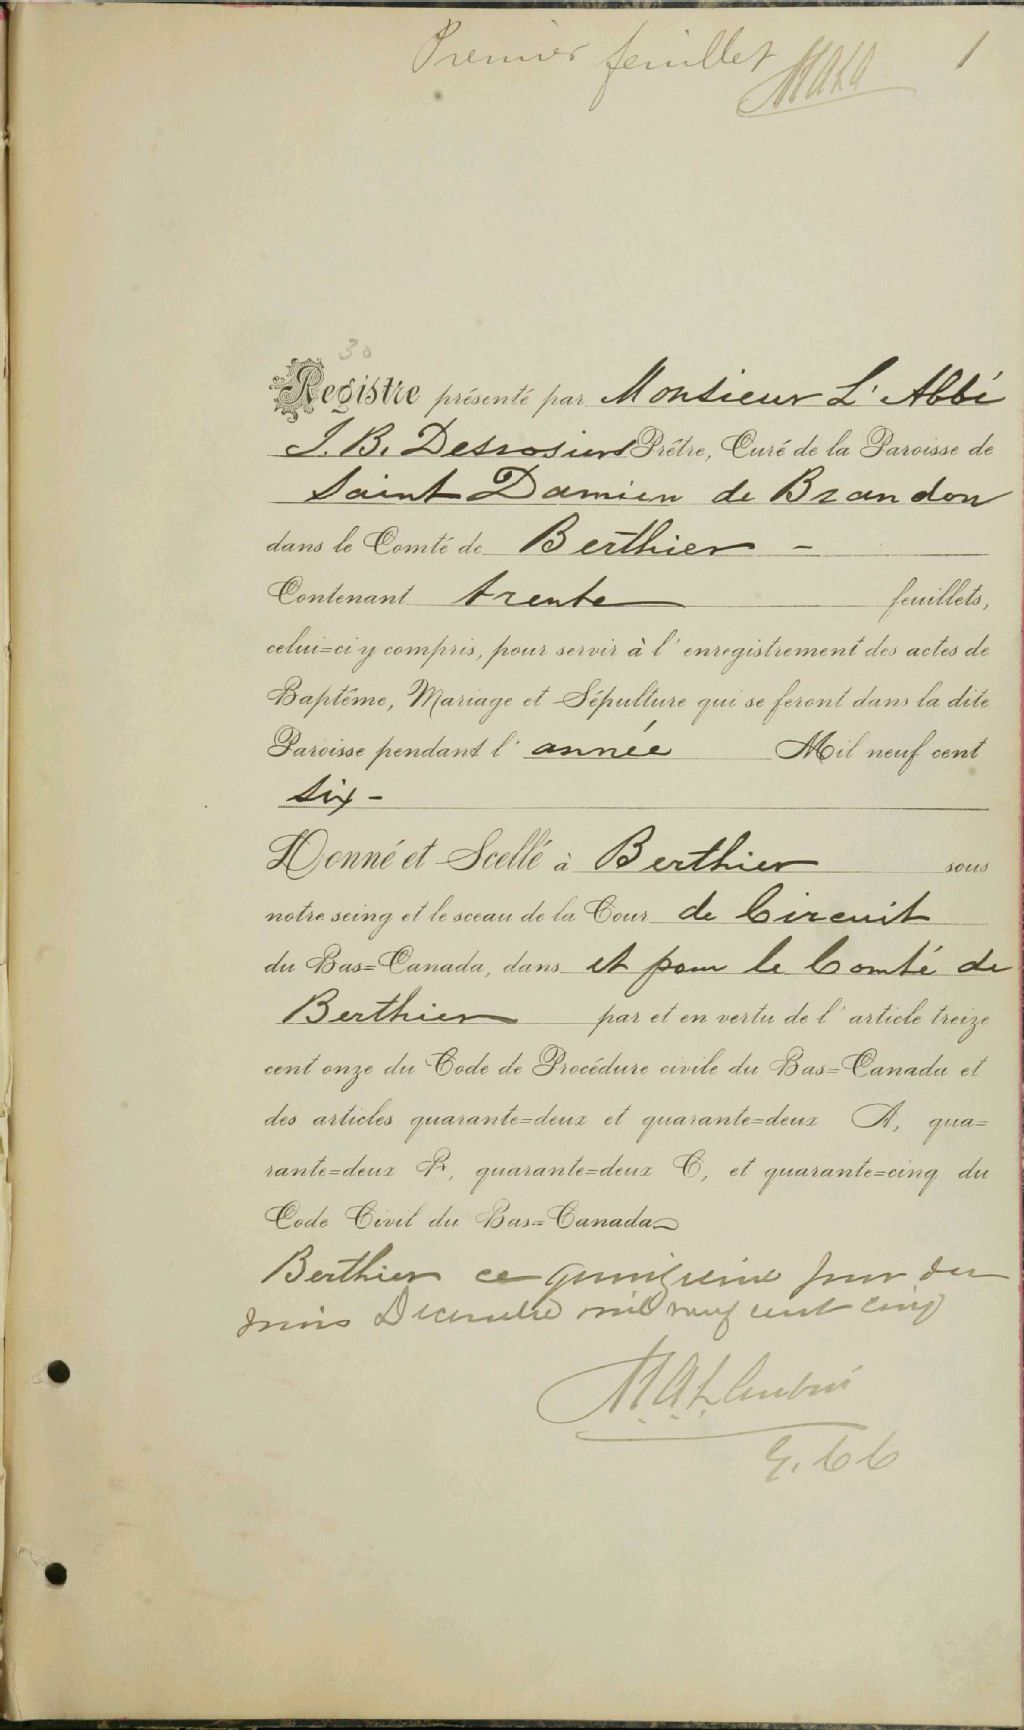 Premier feuillet 1
30
Registre présenté par Monsieur L'Abbé
J. B. Desrosiers Prêtre, Curé de la Paroisse de
Saint Damien de Brandon
dans le Comté de Berthier -
Contenant trente feuillets,
celui=ci y compris, pour servir à l'enregistrement des actes de
Baptême, Mariage et Sépulture qui se feront dans la dite
Paroisse pendant l'année Mil neuf cent
six -
Donné et Scellé à Berthier sous
notre seing et le sceau de la Cour de Circuit
du Bas=Canada, dans et pour le Comté de
Berthier par et en vertu de l'article treize
cent onze du Code de Procédure civile du Bas=Canada et
des articles quarante=deux et quarante=deux A, qua=
rante=deux B, quarante=deux C, et quarante=cinq du
Code Civil du Bas=Canada
Berthier ce quinzieme jour du
mois Decembre mil neuf cent cinq
G. C C